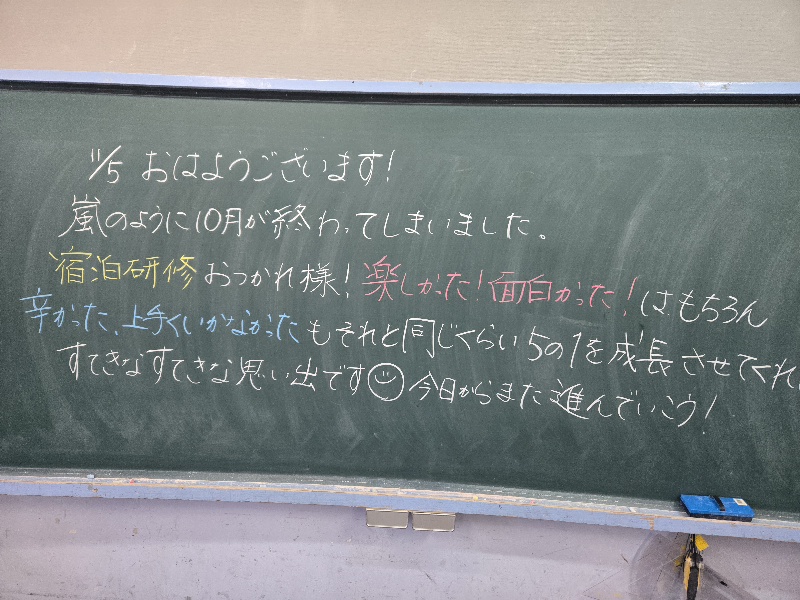 11/5 おはようございます!
嵐のように10月が終わってしまいました。
宿泊研修おつかれ様!楽しかった!面白かった!はもちろん
辛かった、上手くいかなかったもそれと同じくらい5の1を成長させてくれ
すてきなすてきな思い出です☺今日からまた進んでいこう!